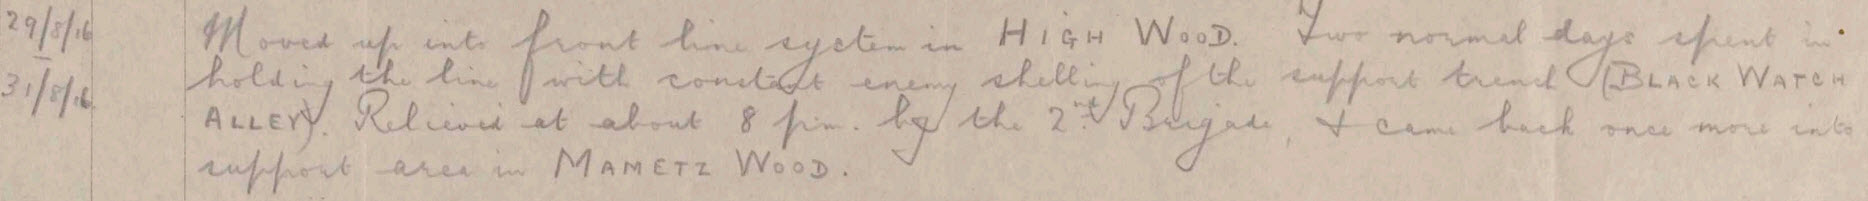 29/8/16 Moved up into front line system in HIGH WOOD. Two normal days spent in
—
31/8/16 holding the line with constant enemy shelling of the support trench (BLACK WATCH
ALLEY). Relieved at about 8 p.m. by the 2nd Brigade, & came back once more into
support area in MAMETZ WOOD.